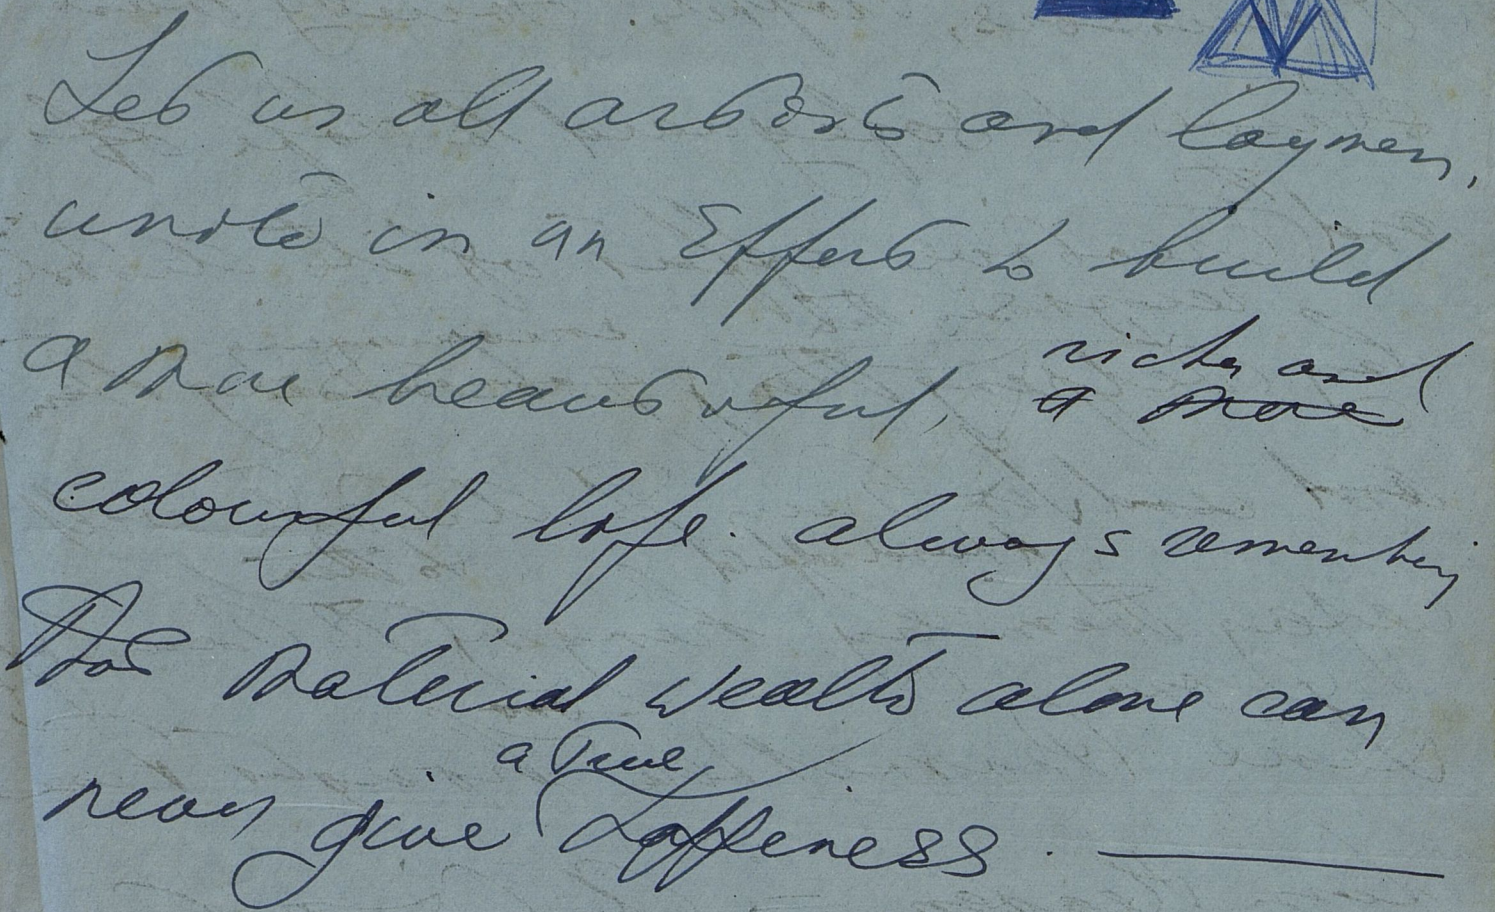 Let us all artists and laymen,
unite in an Effort to build
a more beautiful, richer and
a more
colourful life. always remembering
that material wealth alone can
a true
never give happiness.